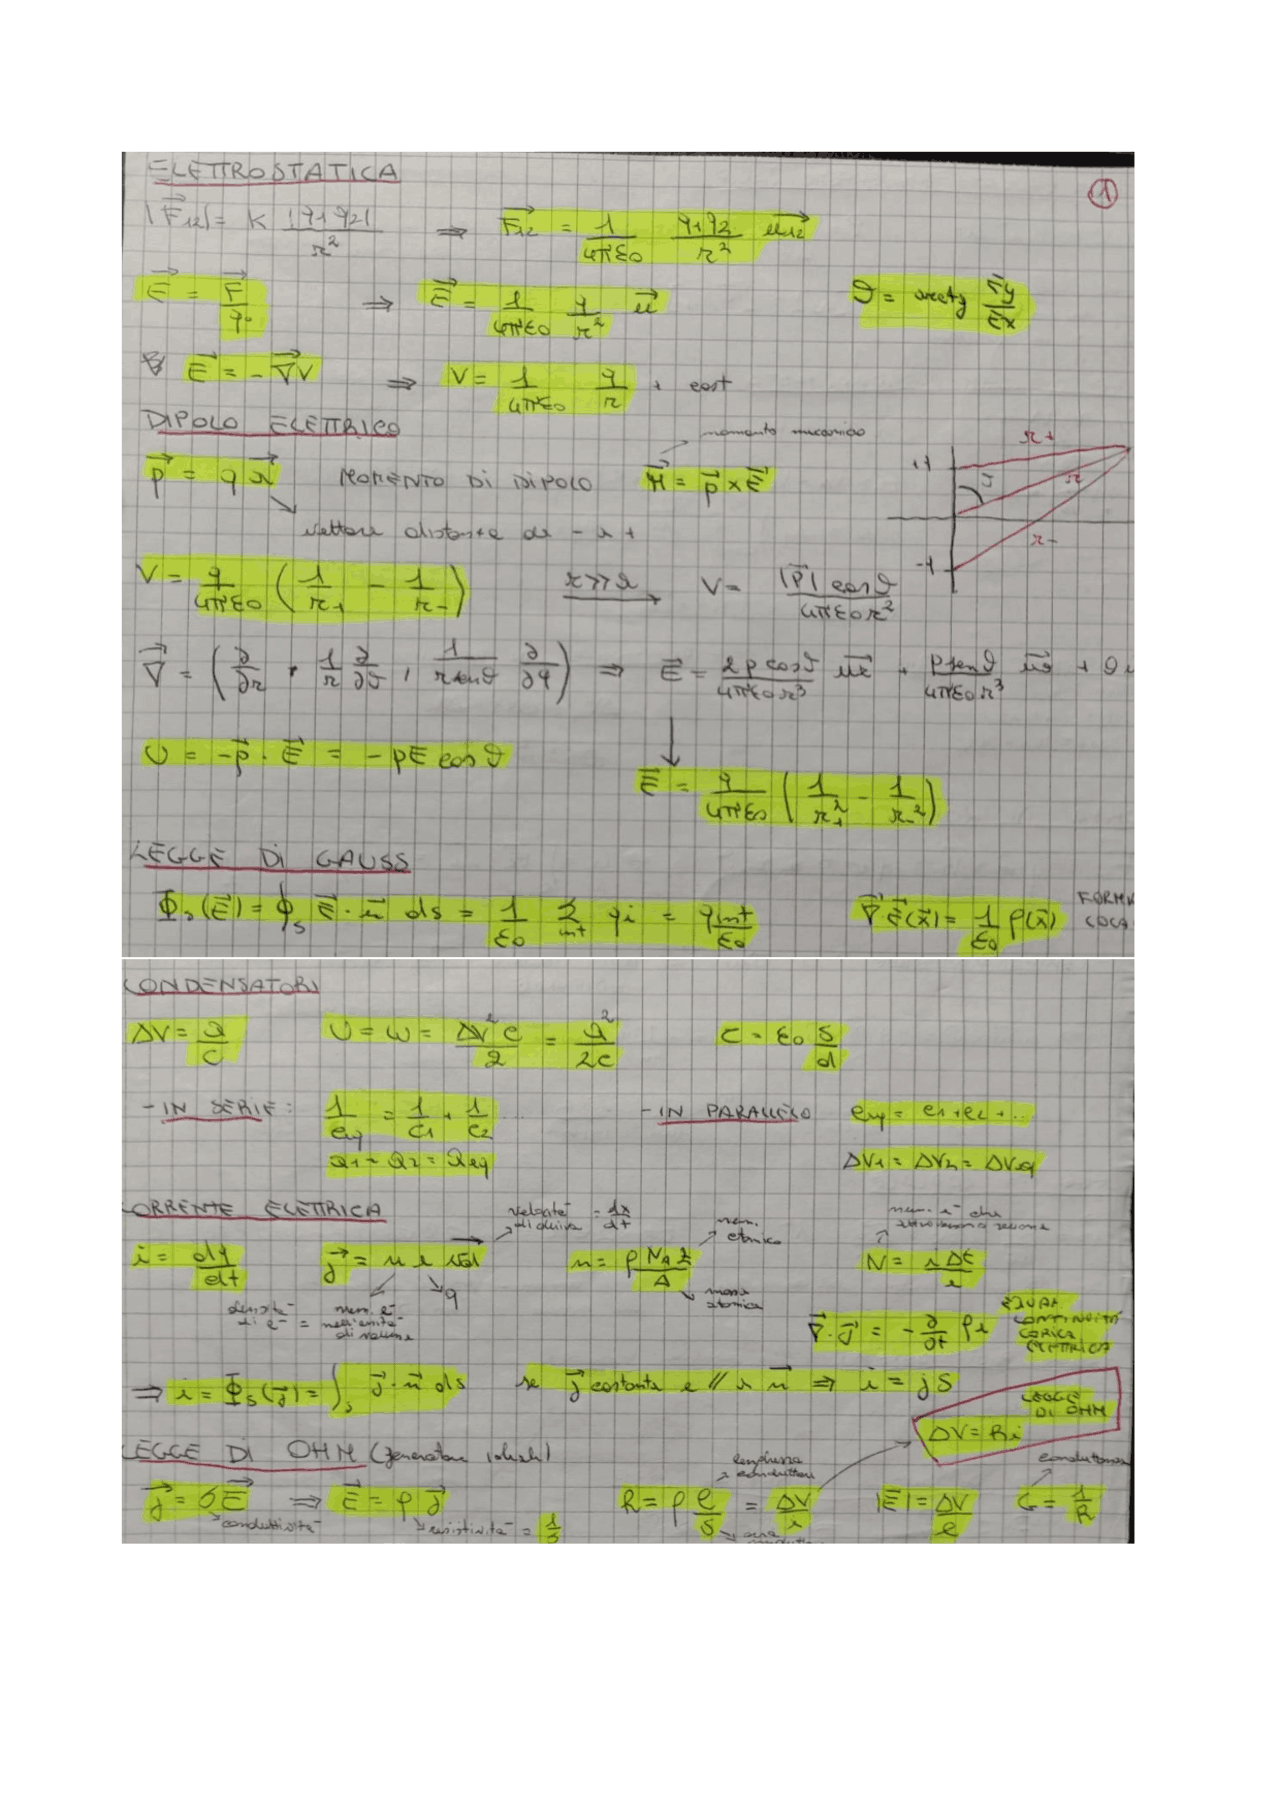 ELETTROSTATICA
①
|F⃗₁₂| = K |q₁q₂| / r² ⇒ F⃗₁₂ = 1/(4πε₀) q₁q₂/r² u⃗₁₂
E⃗ = F⃗/q₀ ⇒ E⃗ = 1/(4πε₀) q/r² u⃗ ϑ = arctg Ey/Ex
E⃗ = -∇⃗V ⇒ V = 1/(4πε₀) q/r + cost
DIPOLO ELETTRICO
momento meccanico
p⃗ = q a⃗ MOMENTO DI DIPOLO M⃗ = p⃗ x E⃗
vettore distanza da - a +
r+
r
r-
V = q/(4πε₀) (1/r₊ - 1/r₋) r>>a → V = |p⃗| cosϑ / 4πε₀r²
∇⃗ = (∂/∂r, 1/r ∂/∂ϑ, 1/(r senϑ) ∂/∂φ) ⇒ E⃗ = 2p cosϑ/(4πε₀r³) u⃗r + p senϑ/(4πε₀r³) u⃗ϑ + 0
U = -p⃗ · E⃗ = -pE cosϑ
E⃗ = q/(4πε₀) (1/r₊² - 1/r₋²)
LEGGE DI GAUSS
Φs(E⃗) = ∮s E⃗ · n⃗ ds = 1/ε₀ Σint qi = qint/ε₀ ∇⃗·E⃗(x⃗) = 1/ε₀ ρ(x⃗) FORMU
CONDENSATORI
ΔV = Q/C U = W = ΔV²C/2 = Q²/2C C = ε₀ S/d
- IN SERIE: 1/Ceq = 1/C1 + 1/C2 ... - IN PARALLELO Ceq = C1 + C2 + ...
Q1 = Q2 = Qeq ΔV1 = ΔV2 = ΔVeq
CORRENTE ELETTRICA
velocità di deriva = dx/dt
num. atomico
num. e⁻ che
i = dq/dt j⃗ = n e v⃗d n = ρ NA Z/A N = i Δt/e
q
massa atomica
densità di e⁻ = num. e⁻ nell'unità di volume
∇⃗·j⃗ = -∂/∂t ρe EQUAZ CONTINUITÀ CARICA ELETTRICA
⇒ i = Φs(j⃗) = ∫s j⃗ · n⃗ ds se j⃗ costante e // a n⃗ ⇒ i = jS
LEGGE DI OHM
ΔV = Ri
LEGGE DI OHM (generatore ideale)
lunghezza conduttore
conduttanza
j⃗ = σE⃗ ⇒ E⃗ = ρj⃗ R = ρ l/S = ΔV/i |E⃗| = ΔV/l G = 1/R
conduttività
resistività = 1/σ
area